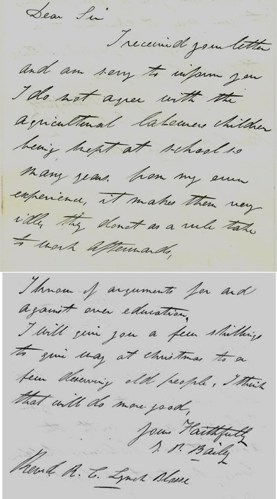 Dear Sir
I received your letter
and am sorry to inform you
I do not agree with the
agricultural labourers children
being kept at school so
many years. from my own
experience, it makes them very
idle, they do not as a rule take
to work afterwards,
I know of arguments for and
against over education,
I will give you a few shillings
to give way at christmas to a
few deserving old people, I think
that will do more good,
Yours Faithfully
Baily
Revd. R. C. Lynch Blosse